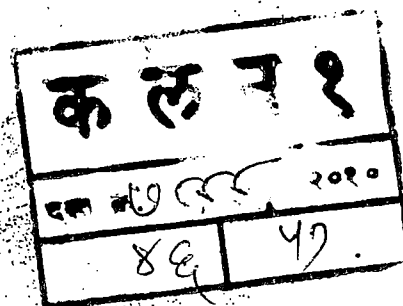 क ल न १
दस्त क्र ७९९९ २०१०
४६ ५७